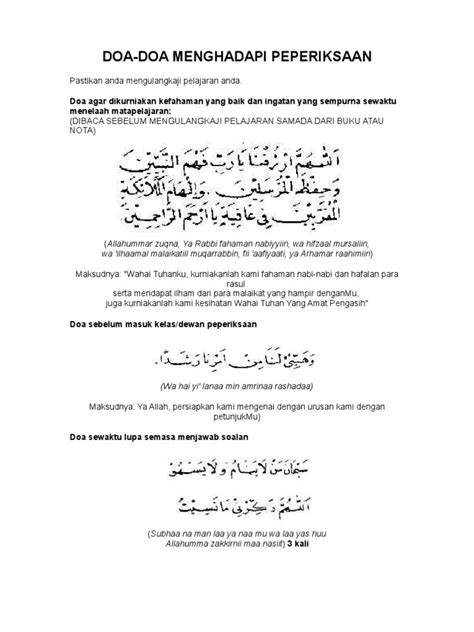 DOA-DOA MENGHADAPI PEPERIKSAAN
Pastikan anda mengulangkaji pelajaran anda.
Doa agar dikurniakan kefahaman yang baik dan ingatan yang sempurna sewaktu
menelaah matapelajaran:
(DIBACA SEBELUM MENGULANGKAJI PELAJARAN SAMADA DARI BUKU ATAU
NOTA)
اَللّٰهُمَّ ارْزُقْنَا يَارَبِّ فَهْمَ النَّبِيِّيْنَ
وَحِفْظَ الْمُرْسَلِيْنَ. وَإِلْهَامَ الْمَلَآئِكَةِ
الْمُقَرَّبِيْنَ فِي عَافِيَةٍ يَا أَرْحَمَ الرَّاحِمِيْنَ
(Allahummar zuqna, Ya Rabbi fahaman nabiyyiin, wa hifzaal mursaliin,
wa 'ilhaamal malaikatiil muqarrabbin, fii 'aafiyaati, ya Arhamar raahimiin)
Maksudnya: "Wahai Tuhanku, kurniakanlah kami fahaman nabi-nabi dan hafalan para
rasul
serta mendapat ilham dari para malaikat yang hampir denganMu,
juga kurniakanlah kami kesihatan Wahai Tuhan Yang Amat Pengasih"
Doa sebelum masuk kelas/dewan peperiksaan
وَهَيِّئْ لَنَا مِنْ أَمْرِنَا رَشَدًا.
(Wa hai yi' lanaa min amrinaa rashadaa)
Maksudnya: Ya Allah, persiapkan kami mengenai dengan urusan kami dengan
petunjukMu)
Doa sewaktu lupa semasa menjawab soalan
سُبْحَانَ مَنْ لَا يَنَامُ وَلَا يَسْهُوْ
اَللّٰهُمَّ ذَكِّرْنِيْ مَا نَسِيْتُ
(Subhaa na man laa ya naa mu wa laa yas huu
Allahumma zakkirnii maa nasiit) 3 kali